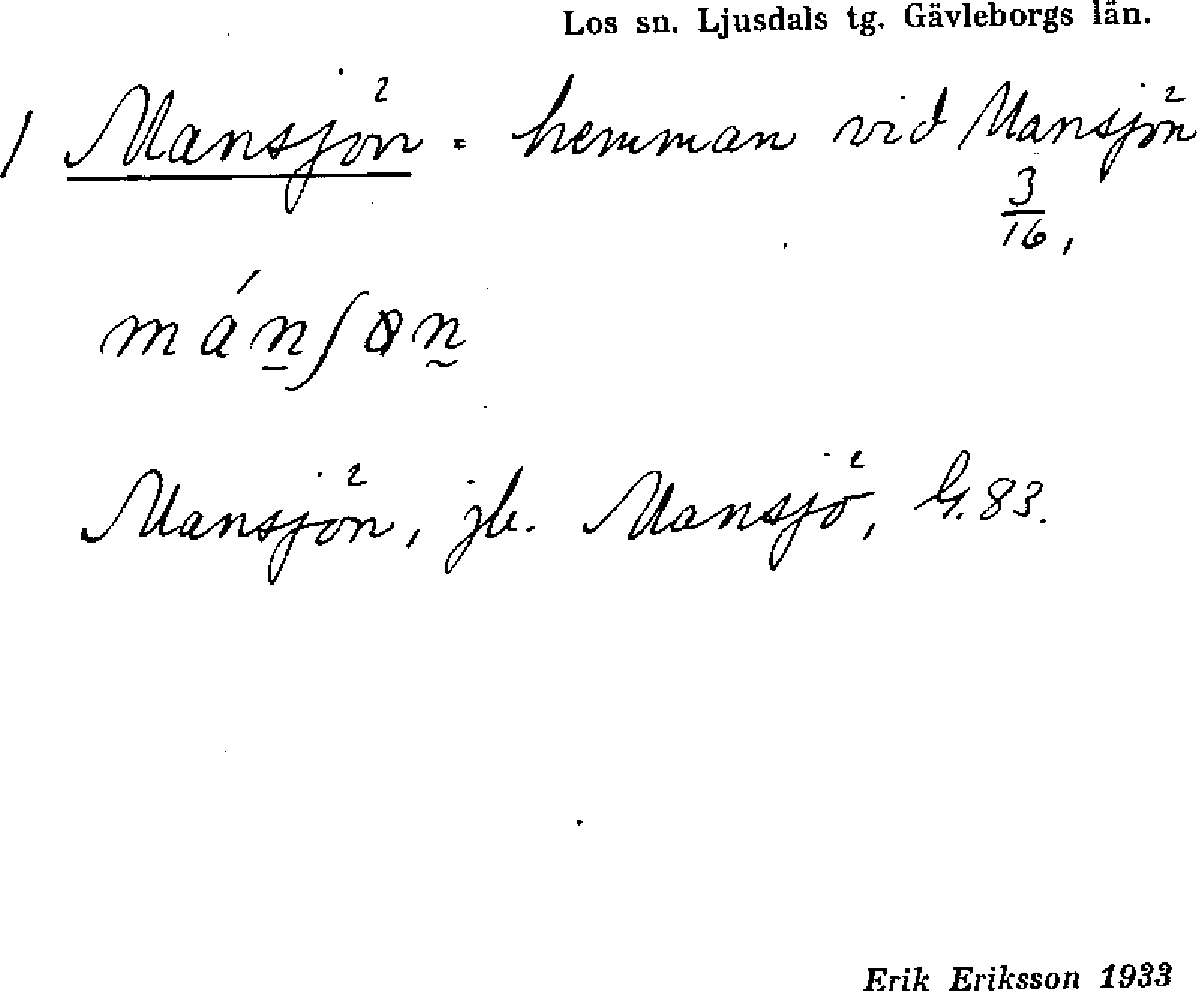 Los sn. Ljusdals tg. Gävleborgs län.
/ Mansjön = hemman vid Mansjön
3/16,
Mansjön, jb. Mansjö, G. 83.
Erik Eriksson 1933